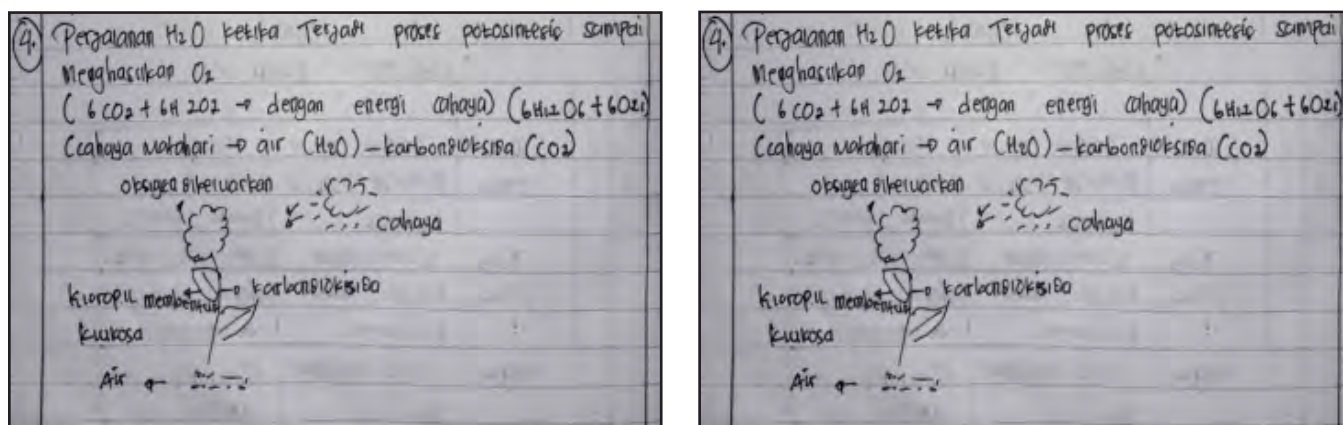 4. Perjalanan H2O ketika Terjadi proses potosintesis sampai
Menghasilkan O2
( 6 CO2 + 6H 2O2 → dengan energi cahaya) (6H12O6 + 6O2)
(cahaya matahari → air (H2O) – karbondioksida (CO2)
oksigen dikeluarkan
cahaya
karbondioksida
kloropil membentuk
klukosa
Air ←
4. Perjalanan H2O ketika Terjadi proses potosintesis sampai
Menghasilkan O2
( 6 CO2 + 6H 2O2 → dengan energi cahaya) (6H12O6 + 6O2)
(cahaya matahari → air (H2O) – karbondioksida (CO2)
oksigen dikeluarkan
cahaya
karbondioksida
kloropil membentuk
klukosa
Air ←